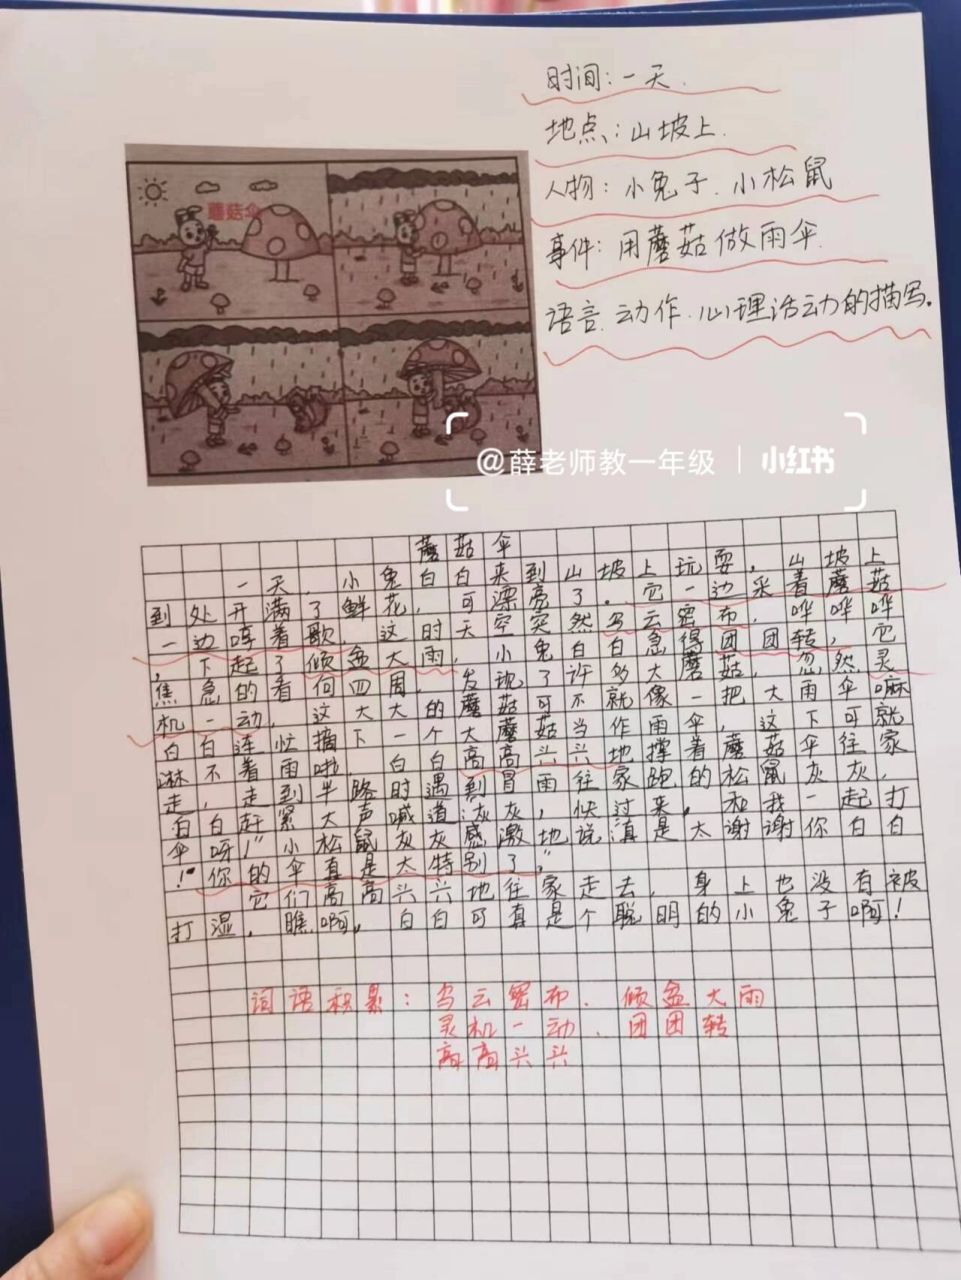 时间：一天.
地点：山坡上.
人物：小兔子.小松鼠
事件：用蘑菇做雨伞.
语言.动作.心理活动的描写.
蘑菇伞
@薛老师教一年级 | 小红书
蘑菇伞
一天，小兔白白来到山坡上玩耍，山坡上
到处开满了鲜花，可漂亮了。它一边采着蘑菇
一边哼着歌，这时天空突然乌云密布，哗哗哗
，下起了倾盆大雨，小兔白白急得团团转，它
焦急的看向四周，发现了许多大蘑菇，忽然灵
机一动，这大大的蘑菇可不就像一把大雨伞嘛
白白连忙摘下一个大蘑菇当作雨伞，这下可就
淋不着雨啦，白白高高兴兴地撑着蘑菇伞往家
走，走到半路时遇到冒雨往家跑的松鼠灰灰，
白白赶紧大声喊道:灰灰，快过来，和我一起打
伞呀！"小松鼠灰灰感激地说:"真是太谢谢你白白
！你的伞真是太特别了，"
它们高高兴兴地往家走去，身上也没有被
打湿，瞧啊，白白可真是个聪明的小兔子啊！
词语积累：乌云密布．倾盆大雨
灵机一动．团团转
高高兴兴